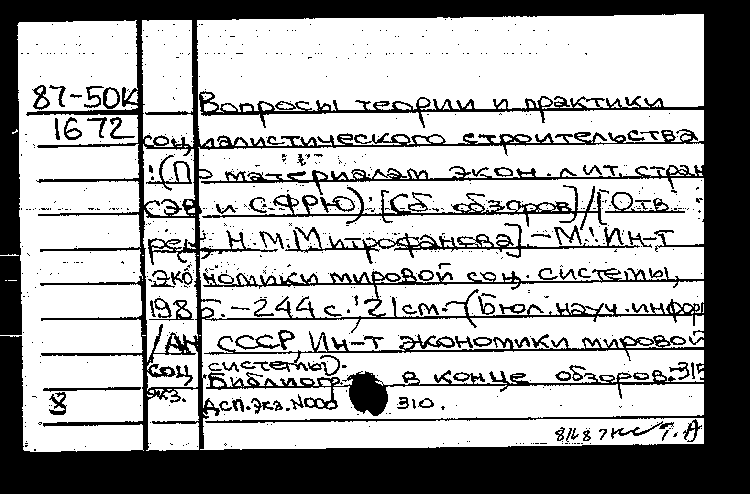 87-50К Вопросы теории и практики
1672 социалистического строительства
:(По материалам экон. лит. стран
СЭВ и СФРЮ):[Сб. обзоров]/[Отв.
ред. Н.М.Митрофанова]-М.:Ин-т
экономики мировой соц. системы,
1985.-244с.;21см.-(Бюл. науч. информ
/АН СССР, Ин-т экономики мировой
соц. системы).
Библиогр. в конце обзоров.-315
экз.
8 ДСП.Экз.N000310.